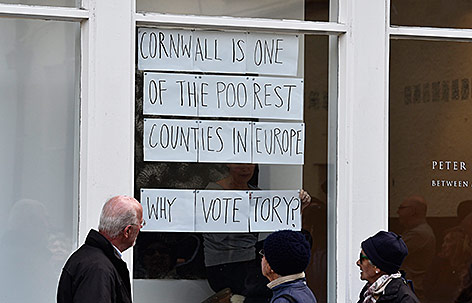 CORNWALL IS ONE
OF THE POOREST
COUNTIES IN EUROPE
WHY VOTE TORY?
PETER
BETWEEN